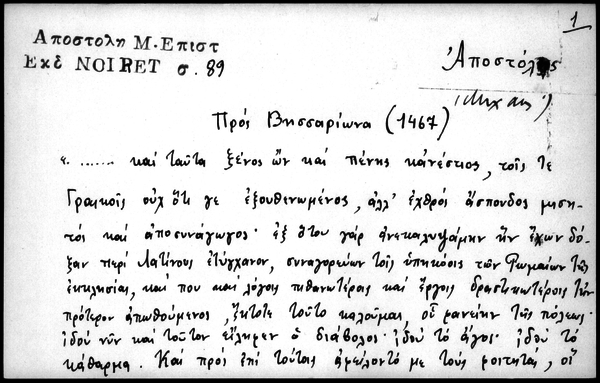 1
Αποστολη Μ. Επιστ
Εκδ NOIRET σ. 89
Ἀποστόλης
(Μιχαήλ)
Πρός Βησσαρίωνα (1467)
«. ...... καί ταῦτα ξένος ὤν καί πένης κἀνέστιος, τοῖς τε
Γραικοῖς οὐχ ὅτι γε ἐξουθενωμένος, ἀλλ' ἐχθρός ἄσπονδος μιση-
τός καί ἀποσυνάγωγος· ἐξ ὅτου γάρ ἀνεκαλυψάμην ἥν ἔχων δό-
ξαν περί Λατίνους ἐτύγχανον, συναγορεύων τοῖς ὑπηκόοις τῶν Ρωμαίων τῆς
ἐκκλησίας, καί που καί λόγοις πιθανωτέροις καί ἔργοις δραστικωτέροις τῶν
πρότερον ἀπωθούμενος, ἔκτοτε τοῦτο καλοῦμαι, οἵ φανεῖεν τῆς πόλεως·
ἰδού νῦν καί τοῦτον εἴληφεν ὁ διάβολος· ἰδού τό ἄγος· ἰδού τό
κάθαρμα. Καί πρός ἐπί τούτοις με τούς φοιτητάς, οἵ